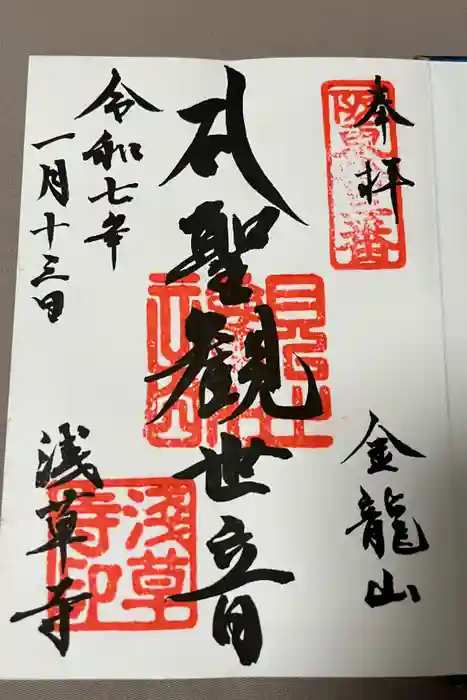 奉拝
金龍山
聖観世音
令和七年
一月十三日
浅草寺
淺草寺印